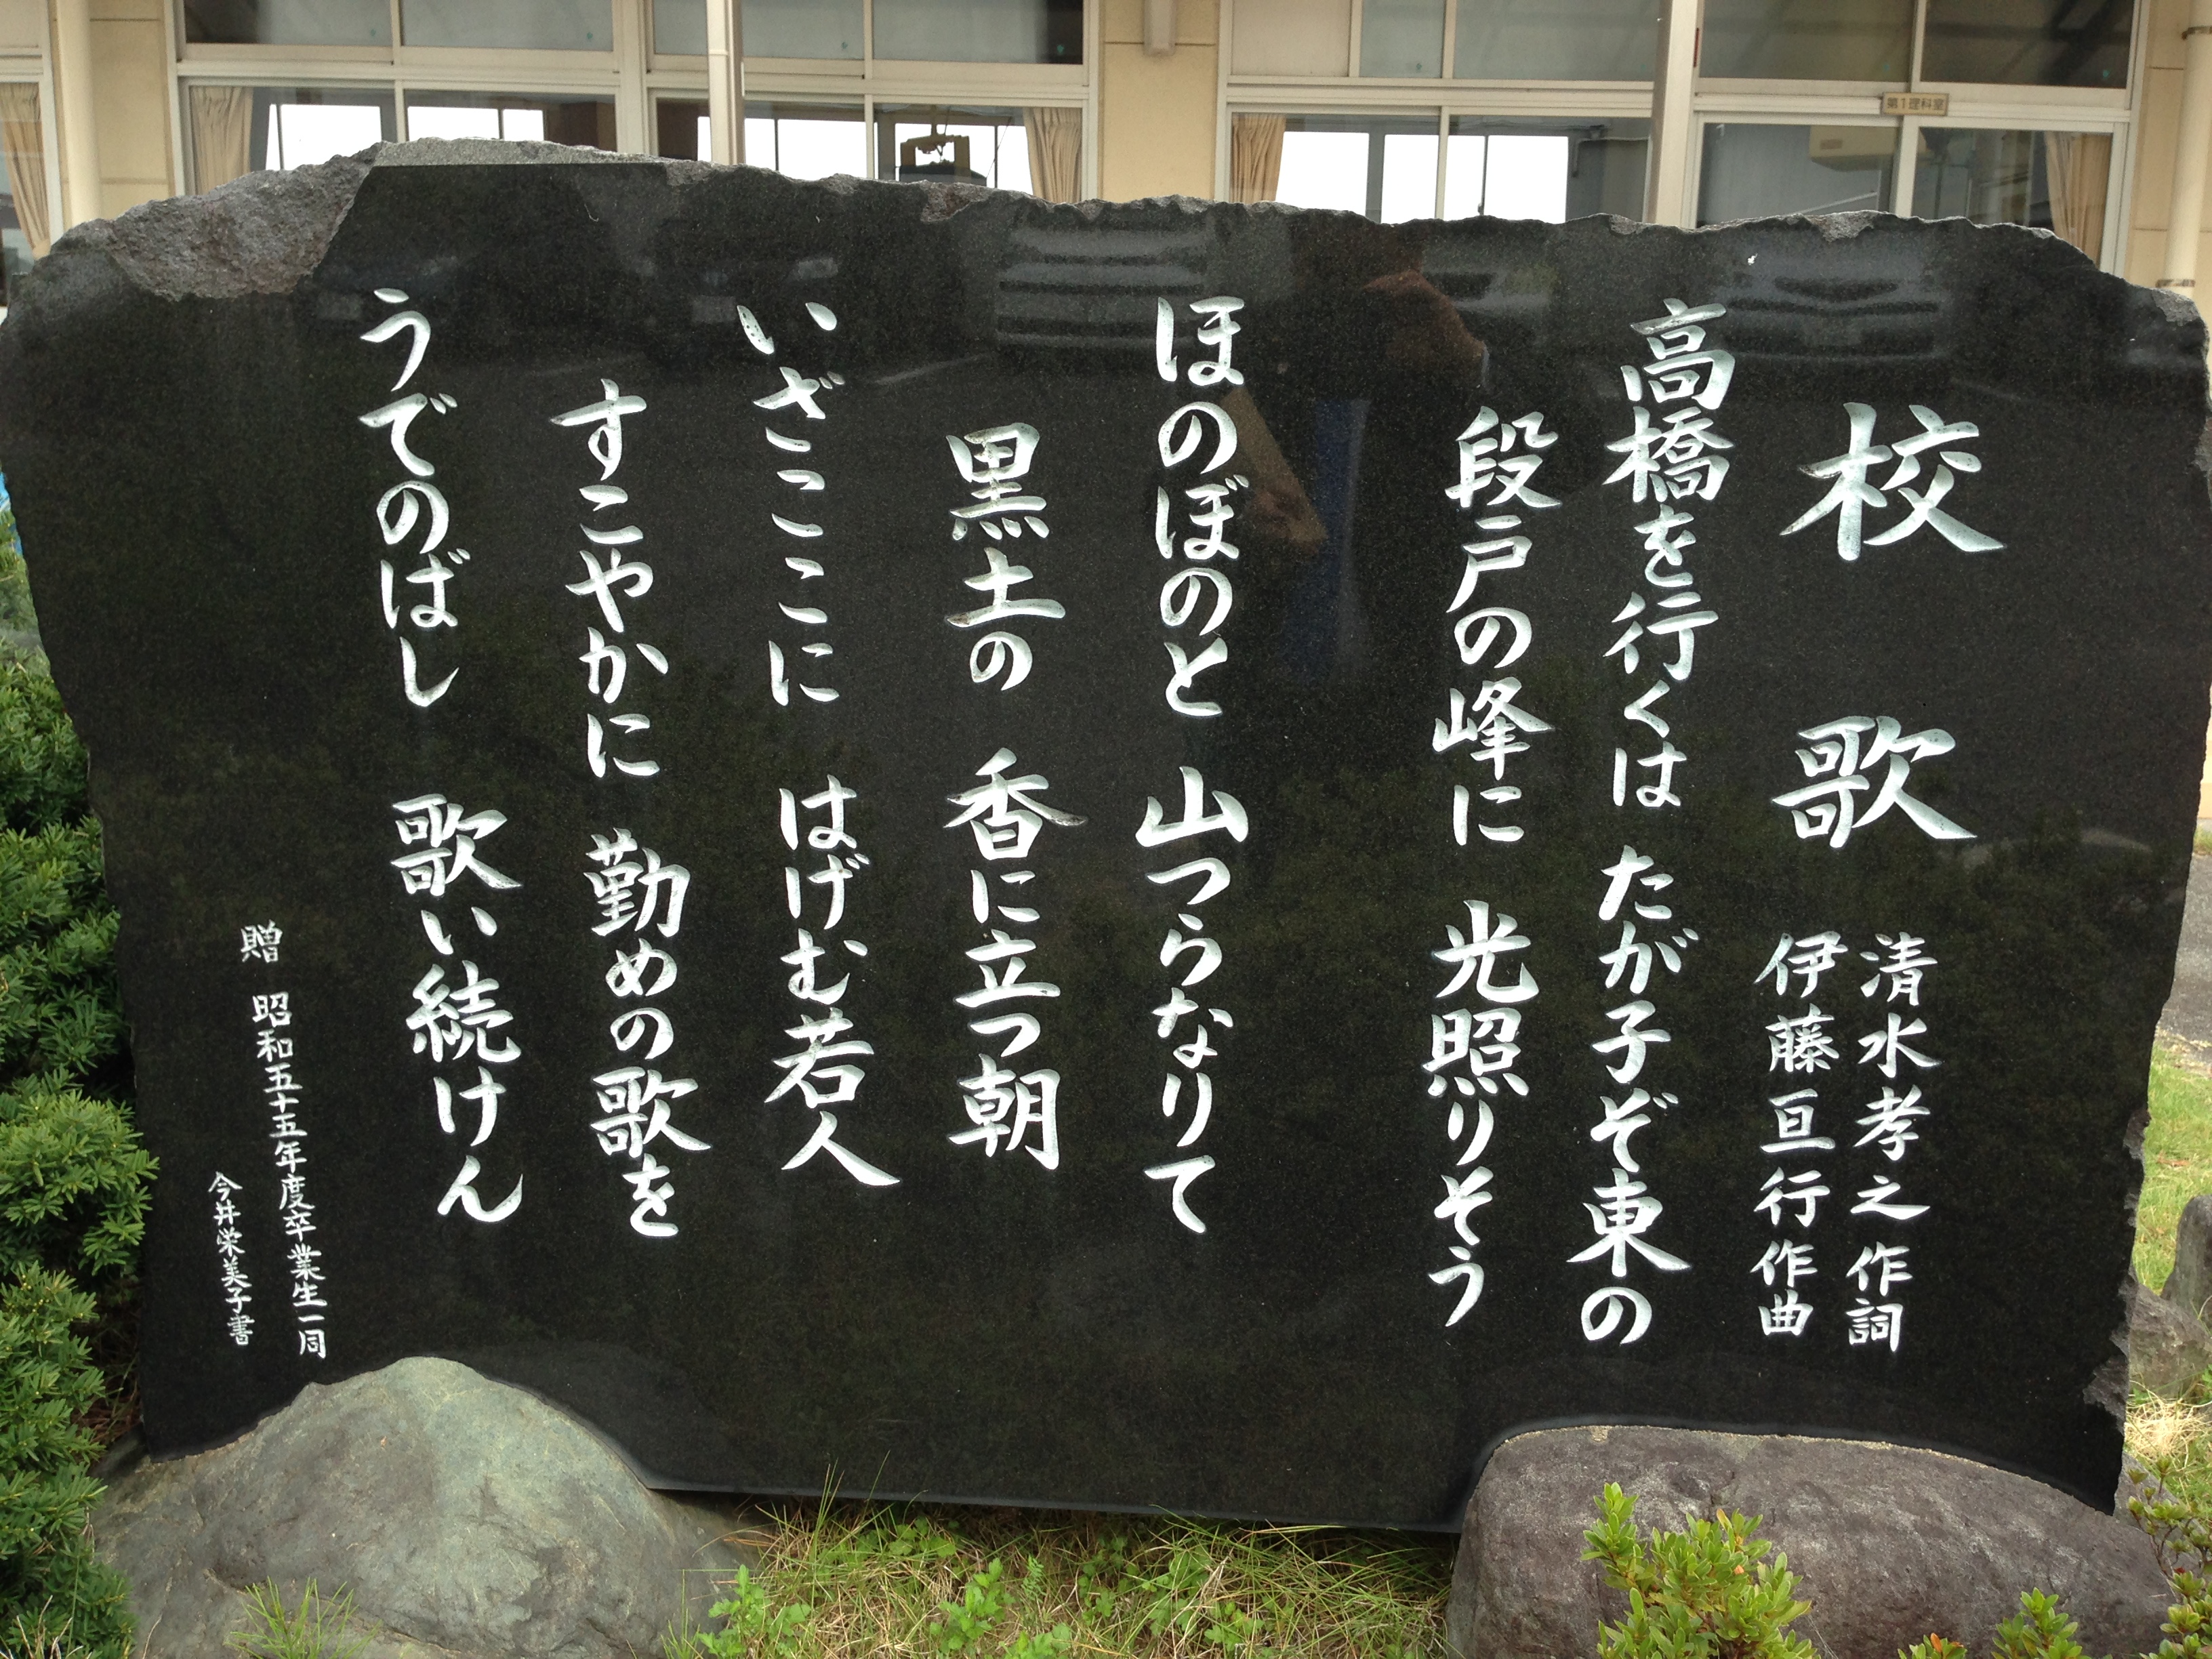 校歌
清水孝之 作詞
伊藤亘行 作曲
高橋を行くは たが子ぞ東の
段戸の峰に 光照りそう
ほのぼのと 山つらなりて
黒土の 香に立つ朝
いざここに はげむ若人
すこやかに 勤めの歌を
うでのばし 歌い続けん
贈 昭和五十五年度卒業生一同
今井栄美子書
第1理科室